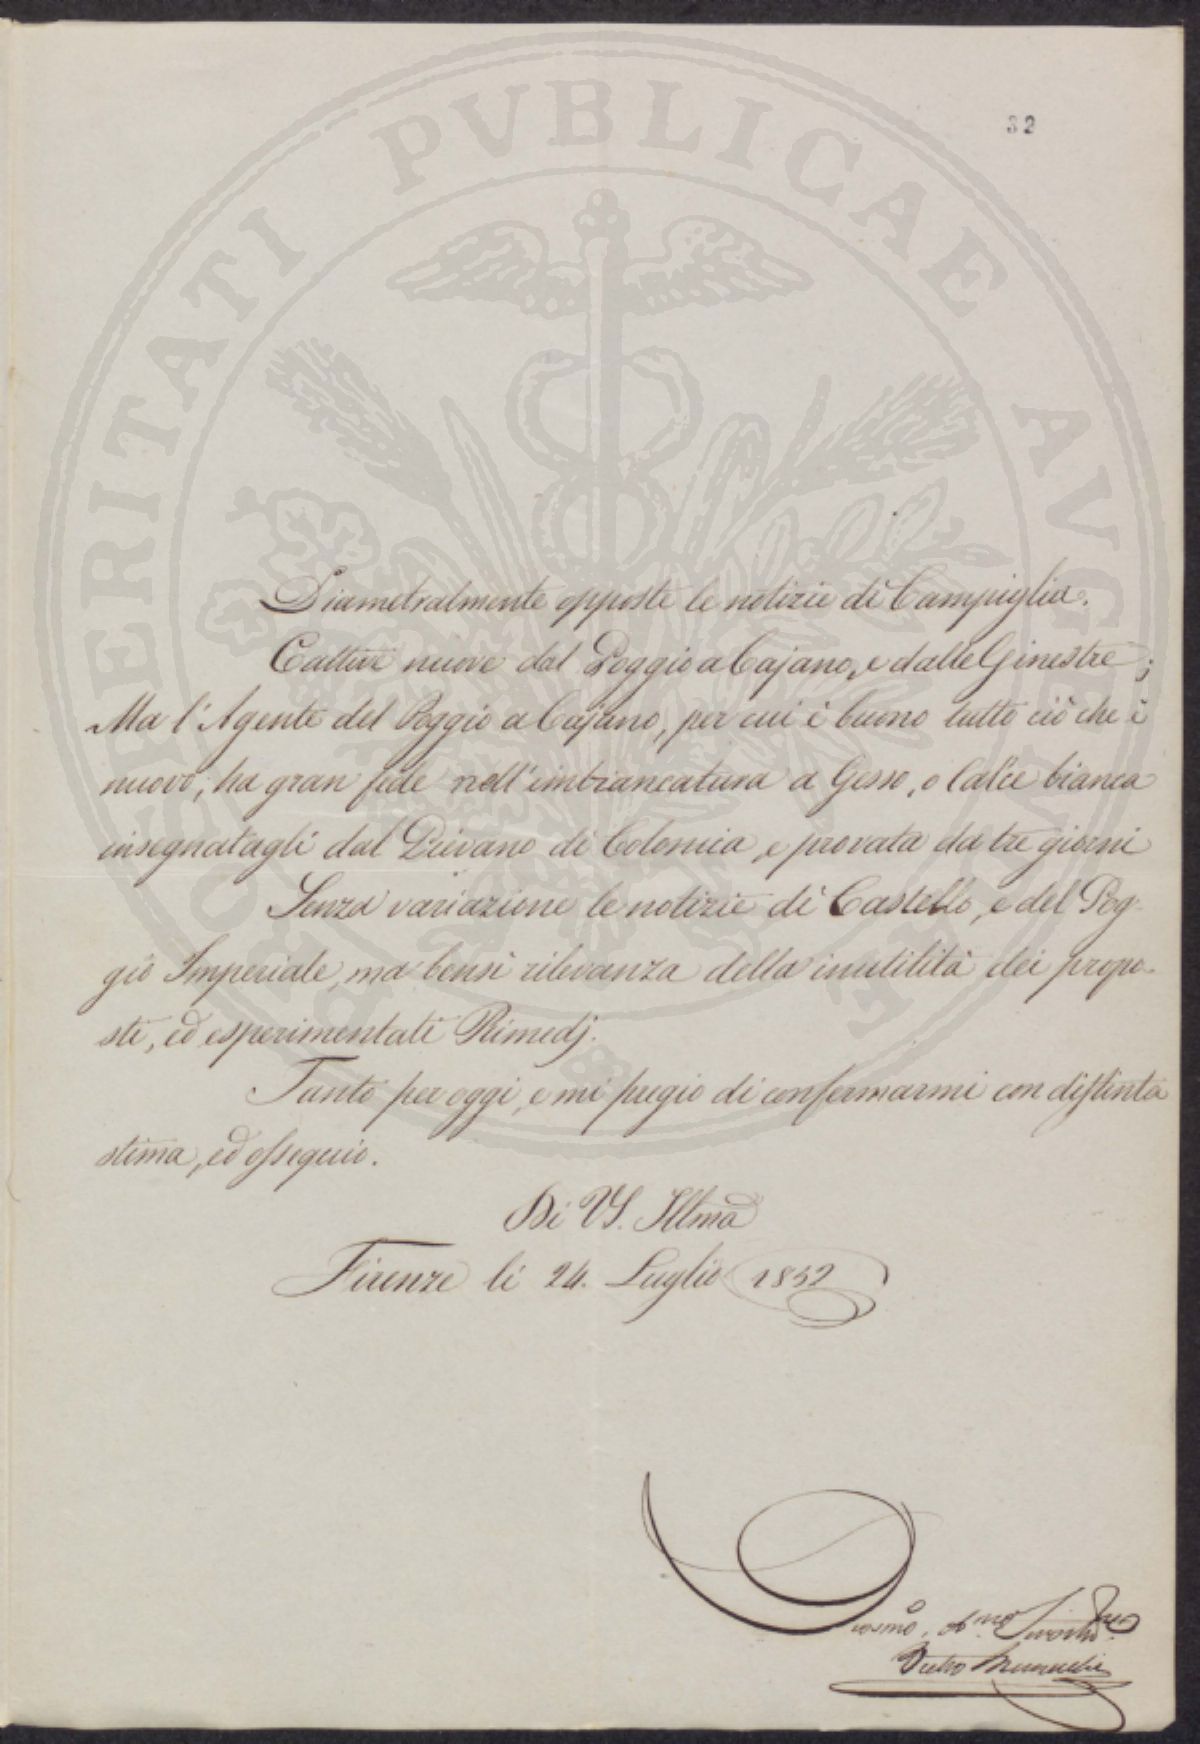 PROSPERITATI PVBLICAE AVGENDAE
32
Diametralmente opposte le notizie di Campiglia.
Cattive nuove dal Poggio a Cajano, e dalle Ginestre;
Ma l'Agente del Poggio a Cajano, per cui è buono tutto ciò che è
nuovo, ha gran fede nell'imbiancatura a Gesso, o Calce bianca
insegnatagli dal Pievano di Colonica, e provata da tre giorni
Senza variazione le notizie di Castello, e del Pog-
gio Imperiale, ma bensì rilevanza della inutilità dei propo-
sti, ed esperimentati Rimedj.
Tanto per oggi, e mi pregio di confermarmi con distinta
stima, ed ossequio.
Di VS. Illma
Firenze li 24. Luglio 1852
Pietro